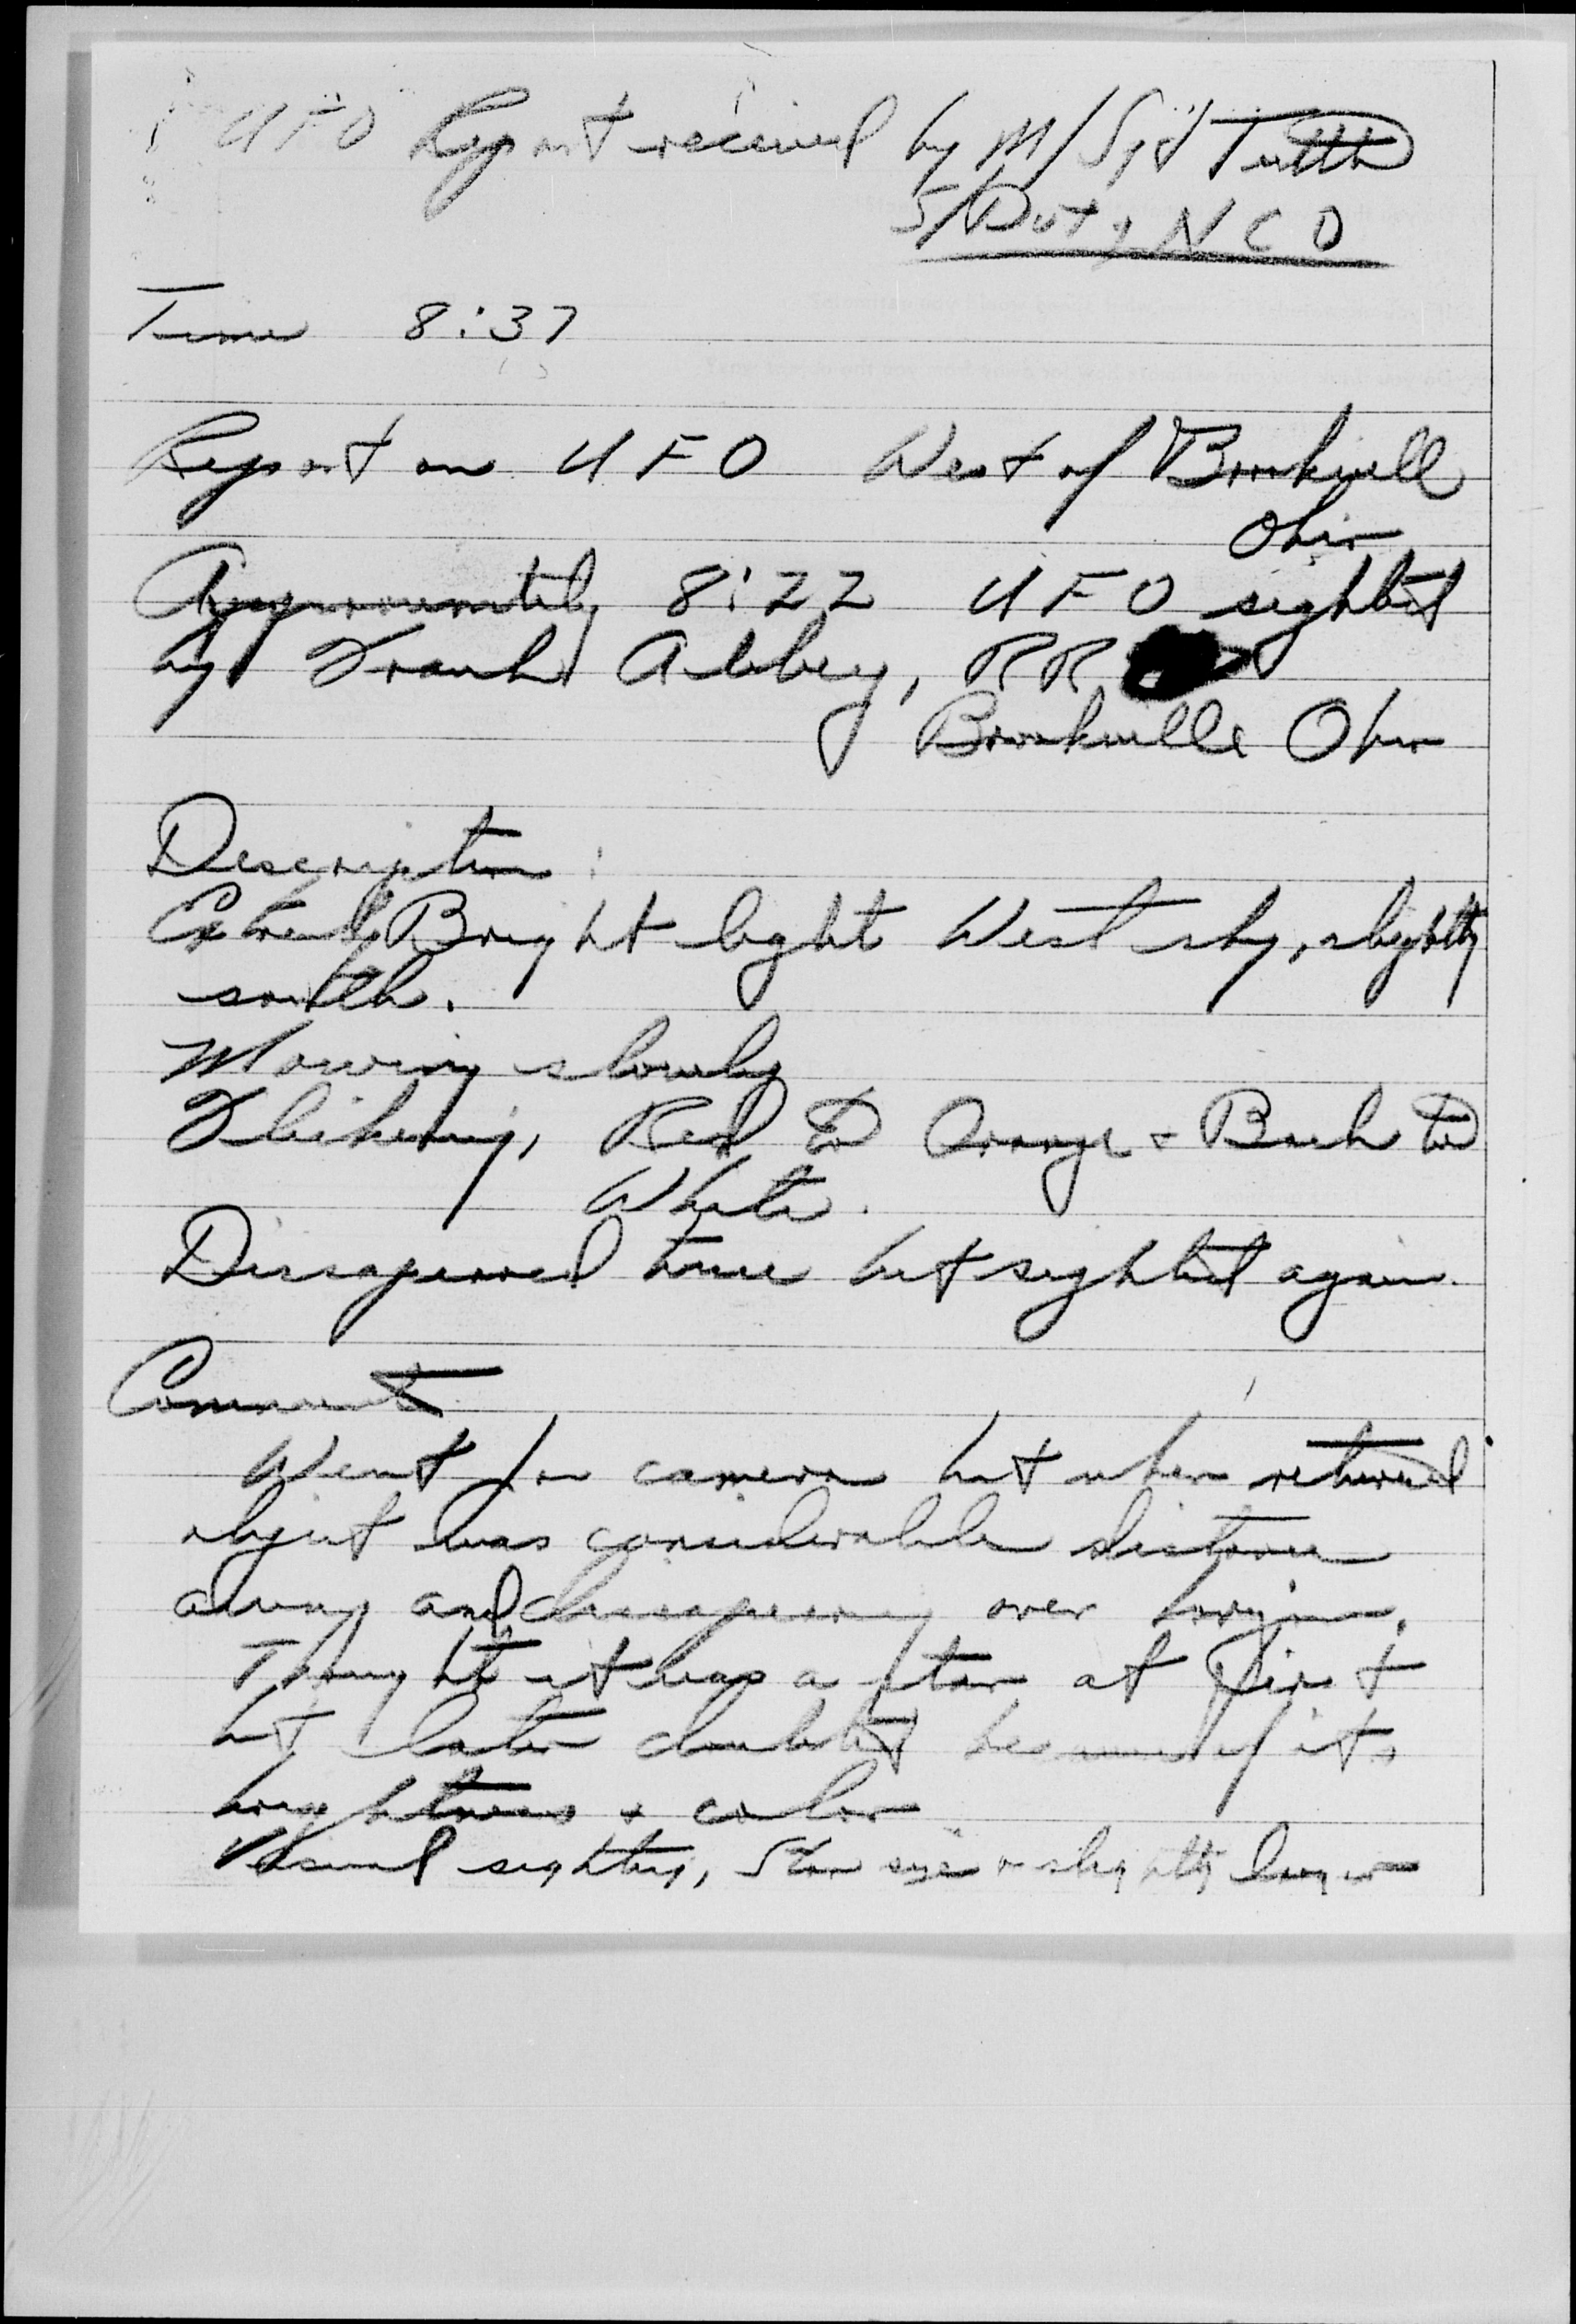 UFO Report received by M/Sgt Tuttle
S/Duty NCO
Time 8:37
Report on UFO West of Brookville
Ohio
Approximately 8:22 UFO sighted
by Frank Abbey, RR
Brookville Ohio
Description:
Extremely Bright light West sky, slightly
south.
Moving slowly
Flikering, Red to Orange + Back to
White.
Dissapeared twice but sighted again.
Comment
Went for camera but when returned
object was considerable distance
away and over horizon.
Thought it was a star at first
but later doubted because of its
brightness + color
Visual sighting, Star size or slightly larger